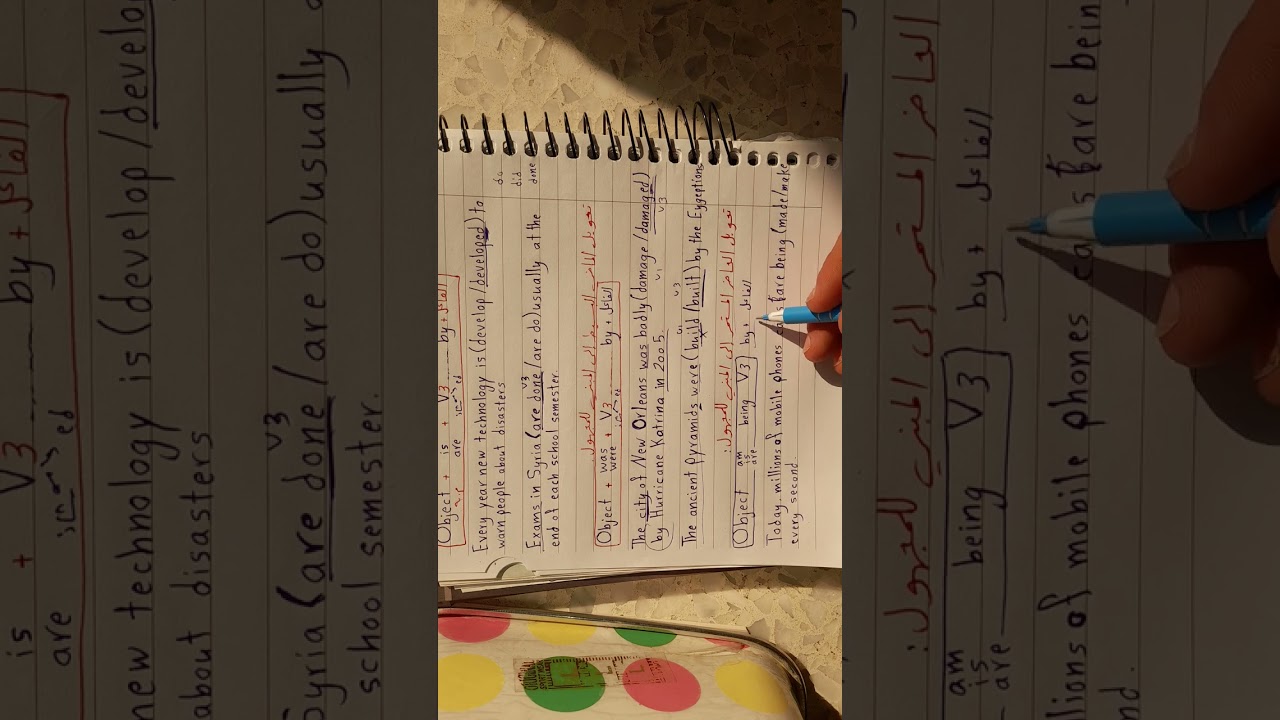 Object + is + V3 ____ by + الفاعل
are ed
Every year new technology is (develop/developed) to
warn people about disasters
do
did
done
V3
Exams in Syria (are done/are do) usually at the
end of each school semester.
تحويل الماضي البسيط إلى المبني للمجهول:
Object + was + V3 ____ by + الفاعل
were ed
The city of New Orleans was badly (damage/damaged)
V1 V3
by Hurricane Katrina in 2005.
V3
The ancient pyramids were (build/built) by the Eygeptions
تحويل الحاضر المستمر إلى المبني للمجهول:
Object ____ am is are ____ being V3 by + الفاعل
Today millions of mobile phones are being (made/make
every second.